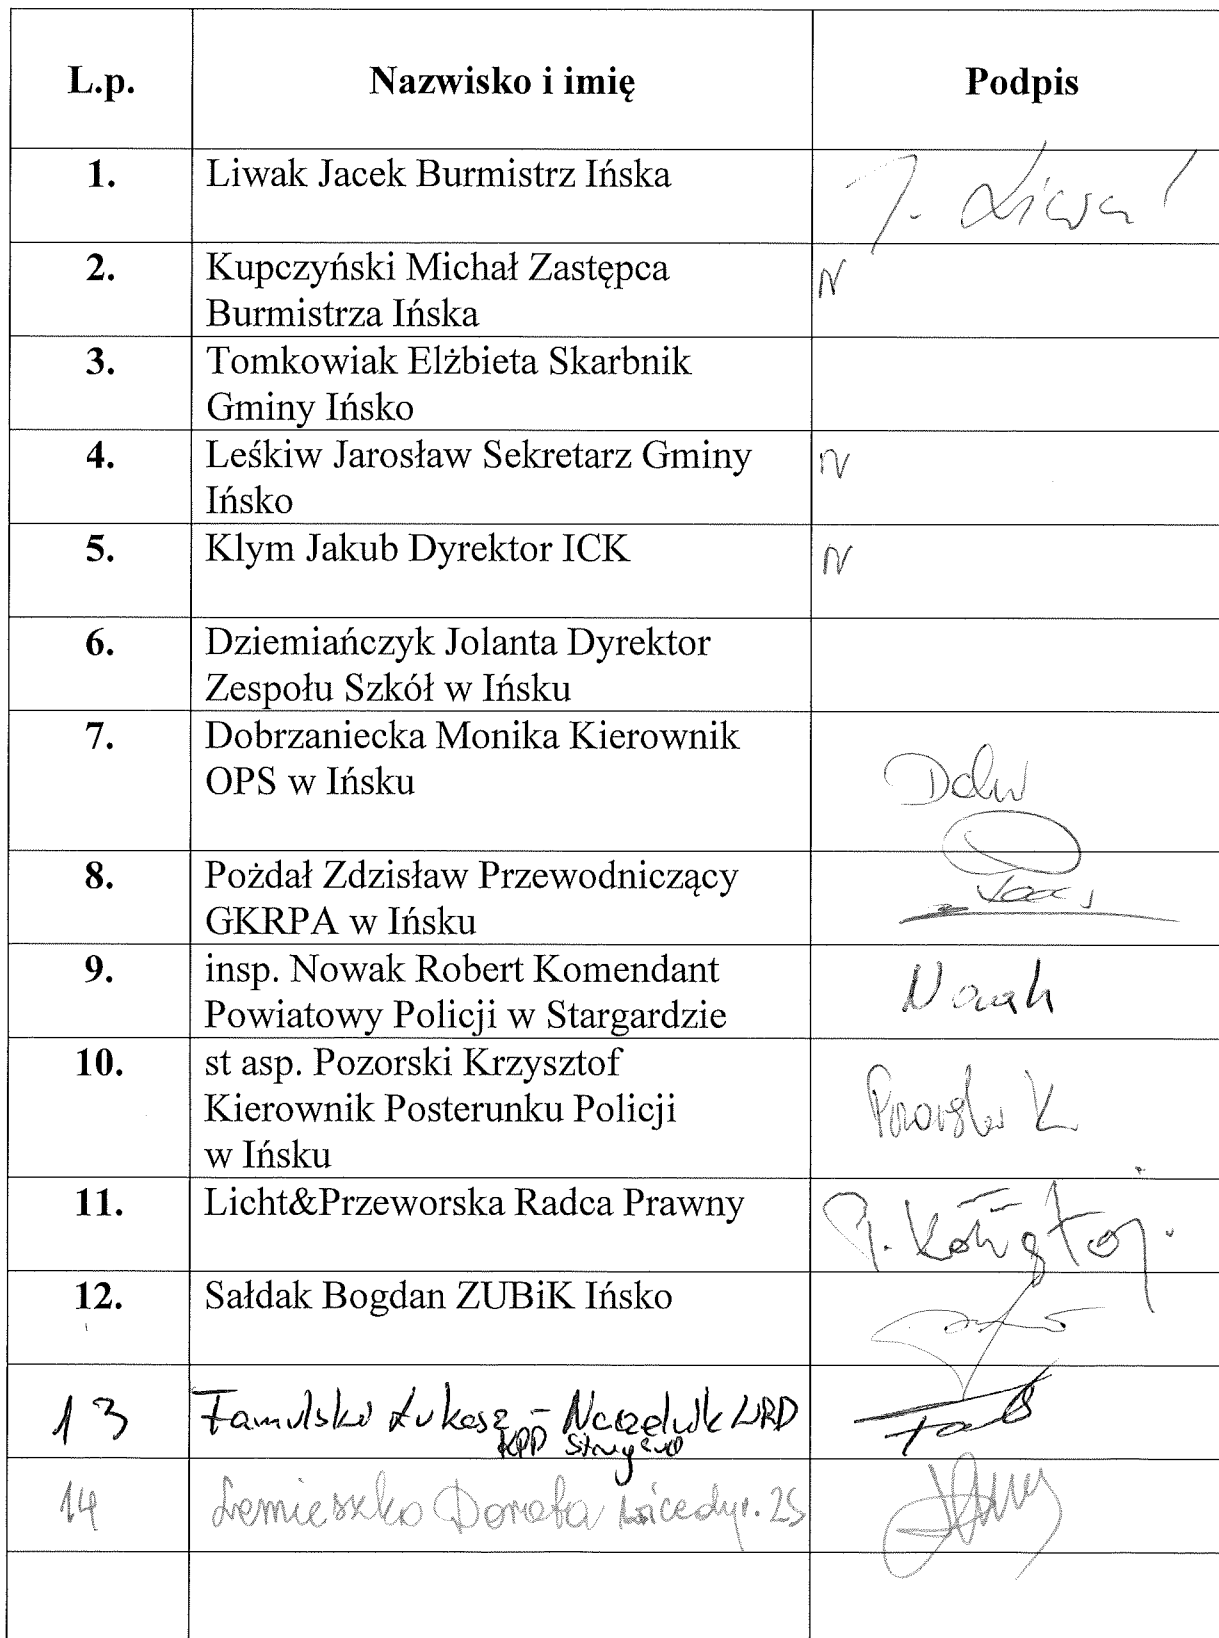 L.p. Nazwisko i imię Podpis
1. Liwak Jacek Burmistrz Ińska J. Liwak
2. Kupczyński Michał Zastępca N
Burmistrza Ińska
3. Tomkowiak Elżbieta Skarbnik
Gminy Ińsko
4. Leśkiw Jarosław Sekretarz Gminy N
Ińsko
5. Klym Jakub Dyrektor ICK N
6. Dziemiańczyk Jolanta Dyrektor
Zespołu Szkół w Ińsku
7. Dobrzaniecka Monika Kierownik
OPS w Ińsku
8. Pożdał Zdzisław Przewodniczący
GKRPA w Ińsku
9. insp. Nowak Robert Komendant Nowak
Powiatowy Policji w Stargardzie
10. st asp. Pozorski Krzysztof
Kierownik Posterunku Policji Pozorski K
w Ińsku
11. Licht&Przeworska Radca Prawny
12. Sałdak Bogdan ZUBiK Ińsko
13 Famulski Łukasz - Naczelnik WRD
KPP Stargard
14 Lemieszko Dorota wicedyr. ZS